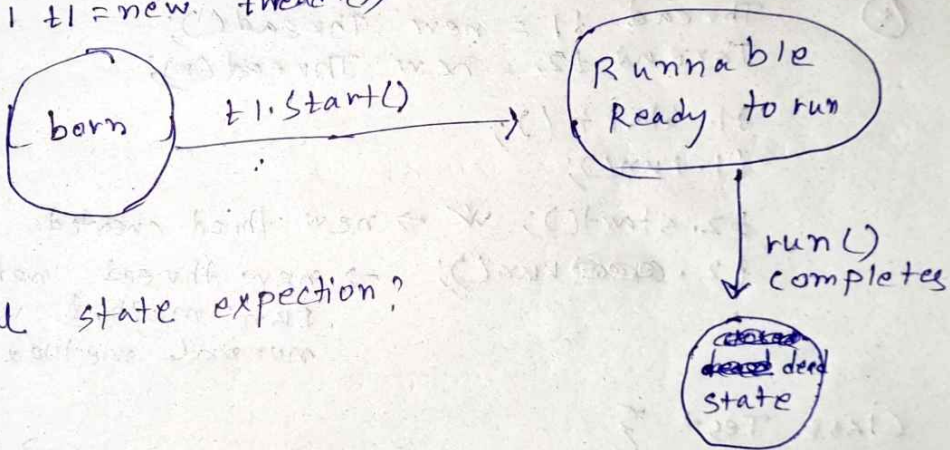 t1 = new thread ()
born
t1.start()
Runnable
Ready to run
run()
completes
state expection?
dead
state